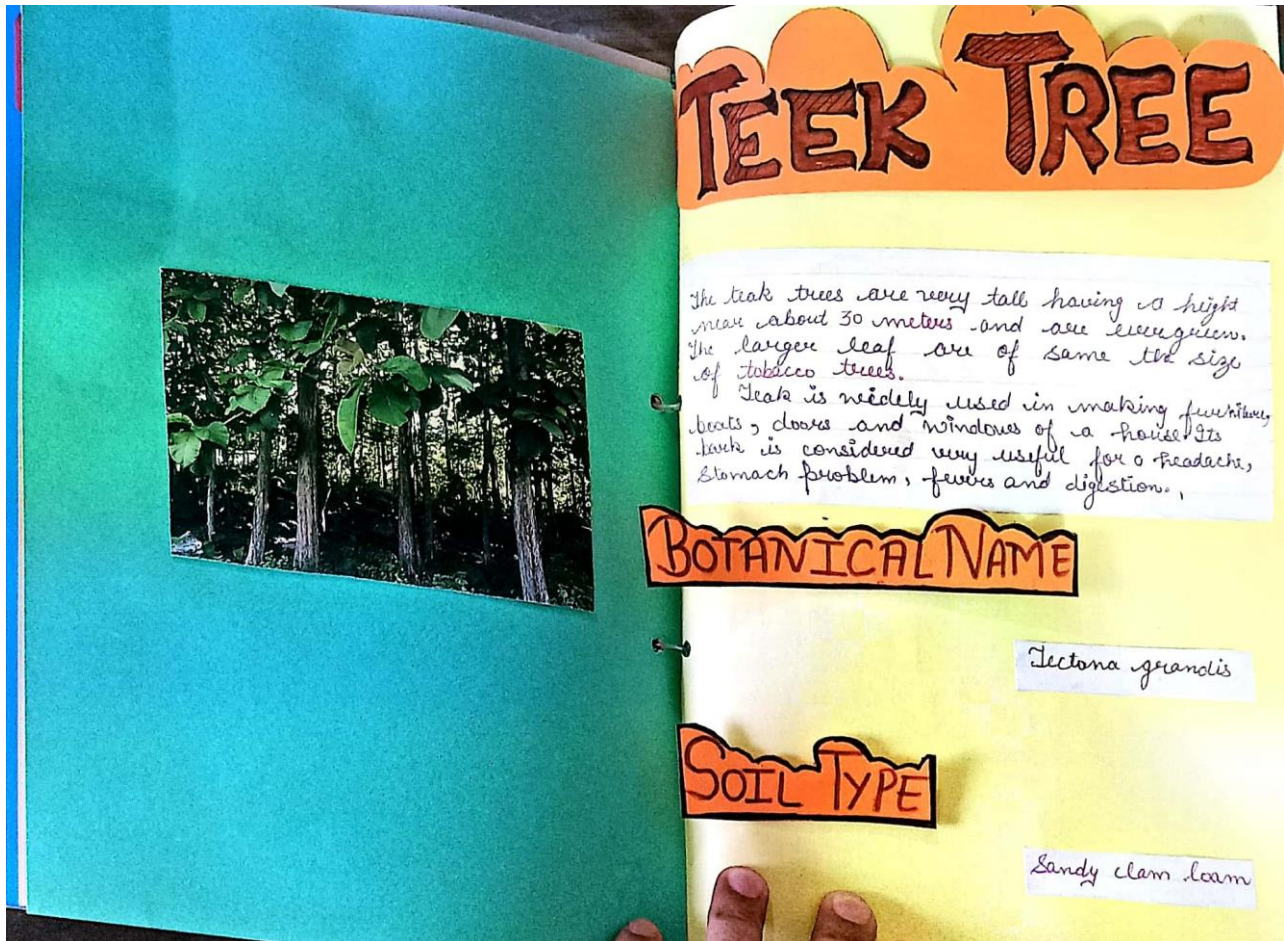 TEEK TREE
The teak trees are very tall having a height
near about 30 meters and are evergreen.
The larger leaf are of same the size
of tobacco trees.
Teak is widely used in making furniture,
boats, doors and windows of a house. Its
bark is considered very useful for a headache,
Stomach problem, fevers and digestion.,
BOTANICAL NAME
Tectona grandis
SOIL TYPE
Sandy clam loam